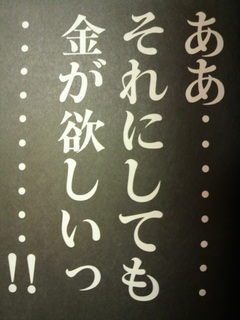 ああ・・・・・・・
それにしても
金が欲しいっ
・・・・・・・・・・!!